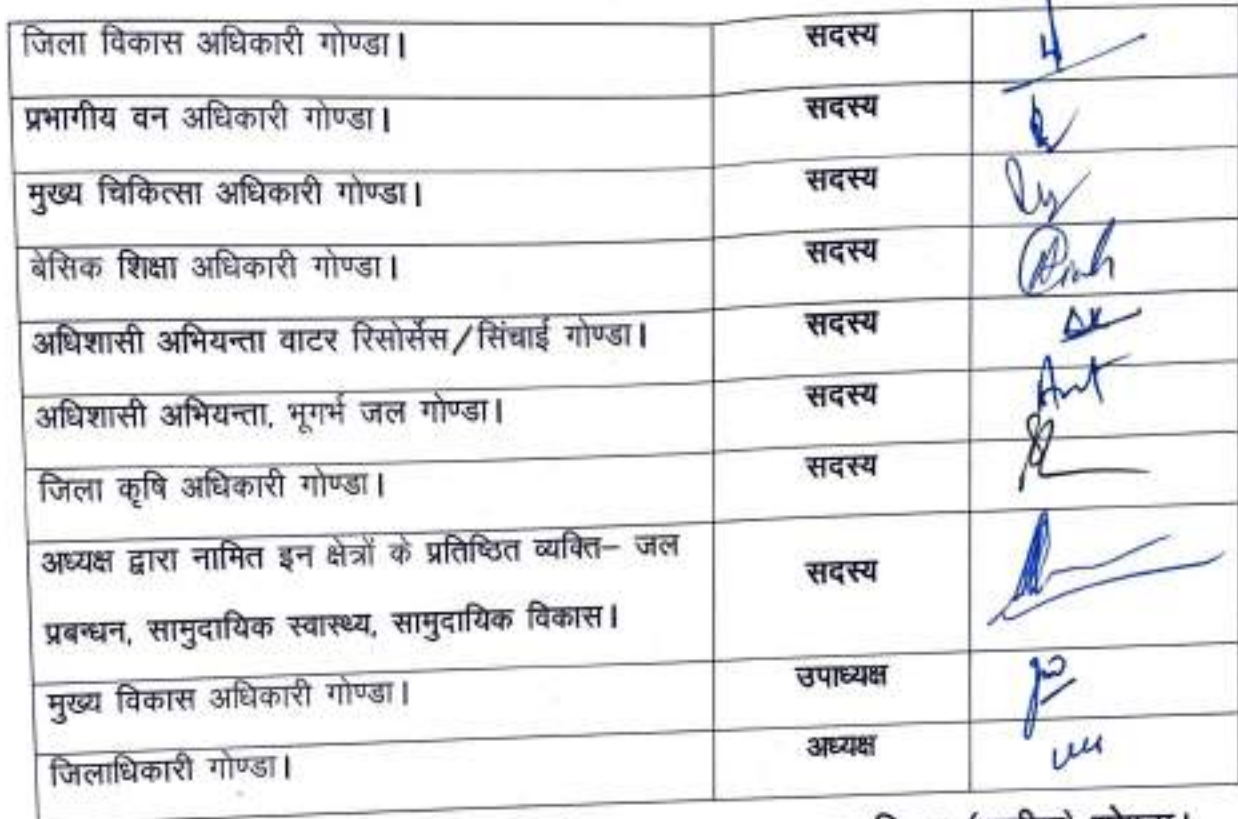 जिला विकास अधिकारी गोण्डा। सदस्य
प्रभागीय वन अधिकारी गोण्डा। सदस्य
मुख्य चिकित्सा अधिकारी गोण्डा। सदस्य
बेसिक शिक्षा अधिकारी गोण्डा। सदस्य
अधिशासी अभियन्ता वाटर रिसोर्सेस/सिंचाई गोण्डा। सदस्य
अधिशासी अभियन्ता, भूगर्भ जल गोण्डा। सदस्य
जिला कृषि अधिकारी गोण्डा। सदस्य
अध्यक्ष द्वारा नामित इन क्षेत्रों के प्रतिष्ठित व्यक्ति– जल
प्रबन्धन, सामुदायिक स्वास्थ्य, सामुदायिक विकास। सदस्य
मुख्य विकास अधिकारी गोण्डा। उपाध्यक्ष
जिलाधिकारी गोण्डा। अध्यक्ष
गोण्डा।